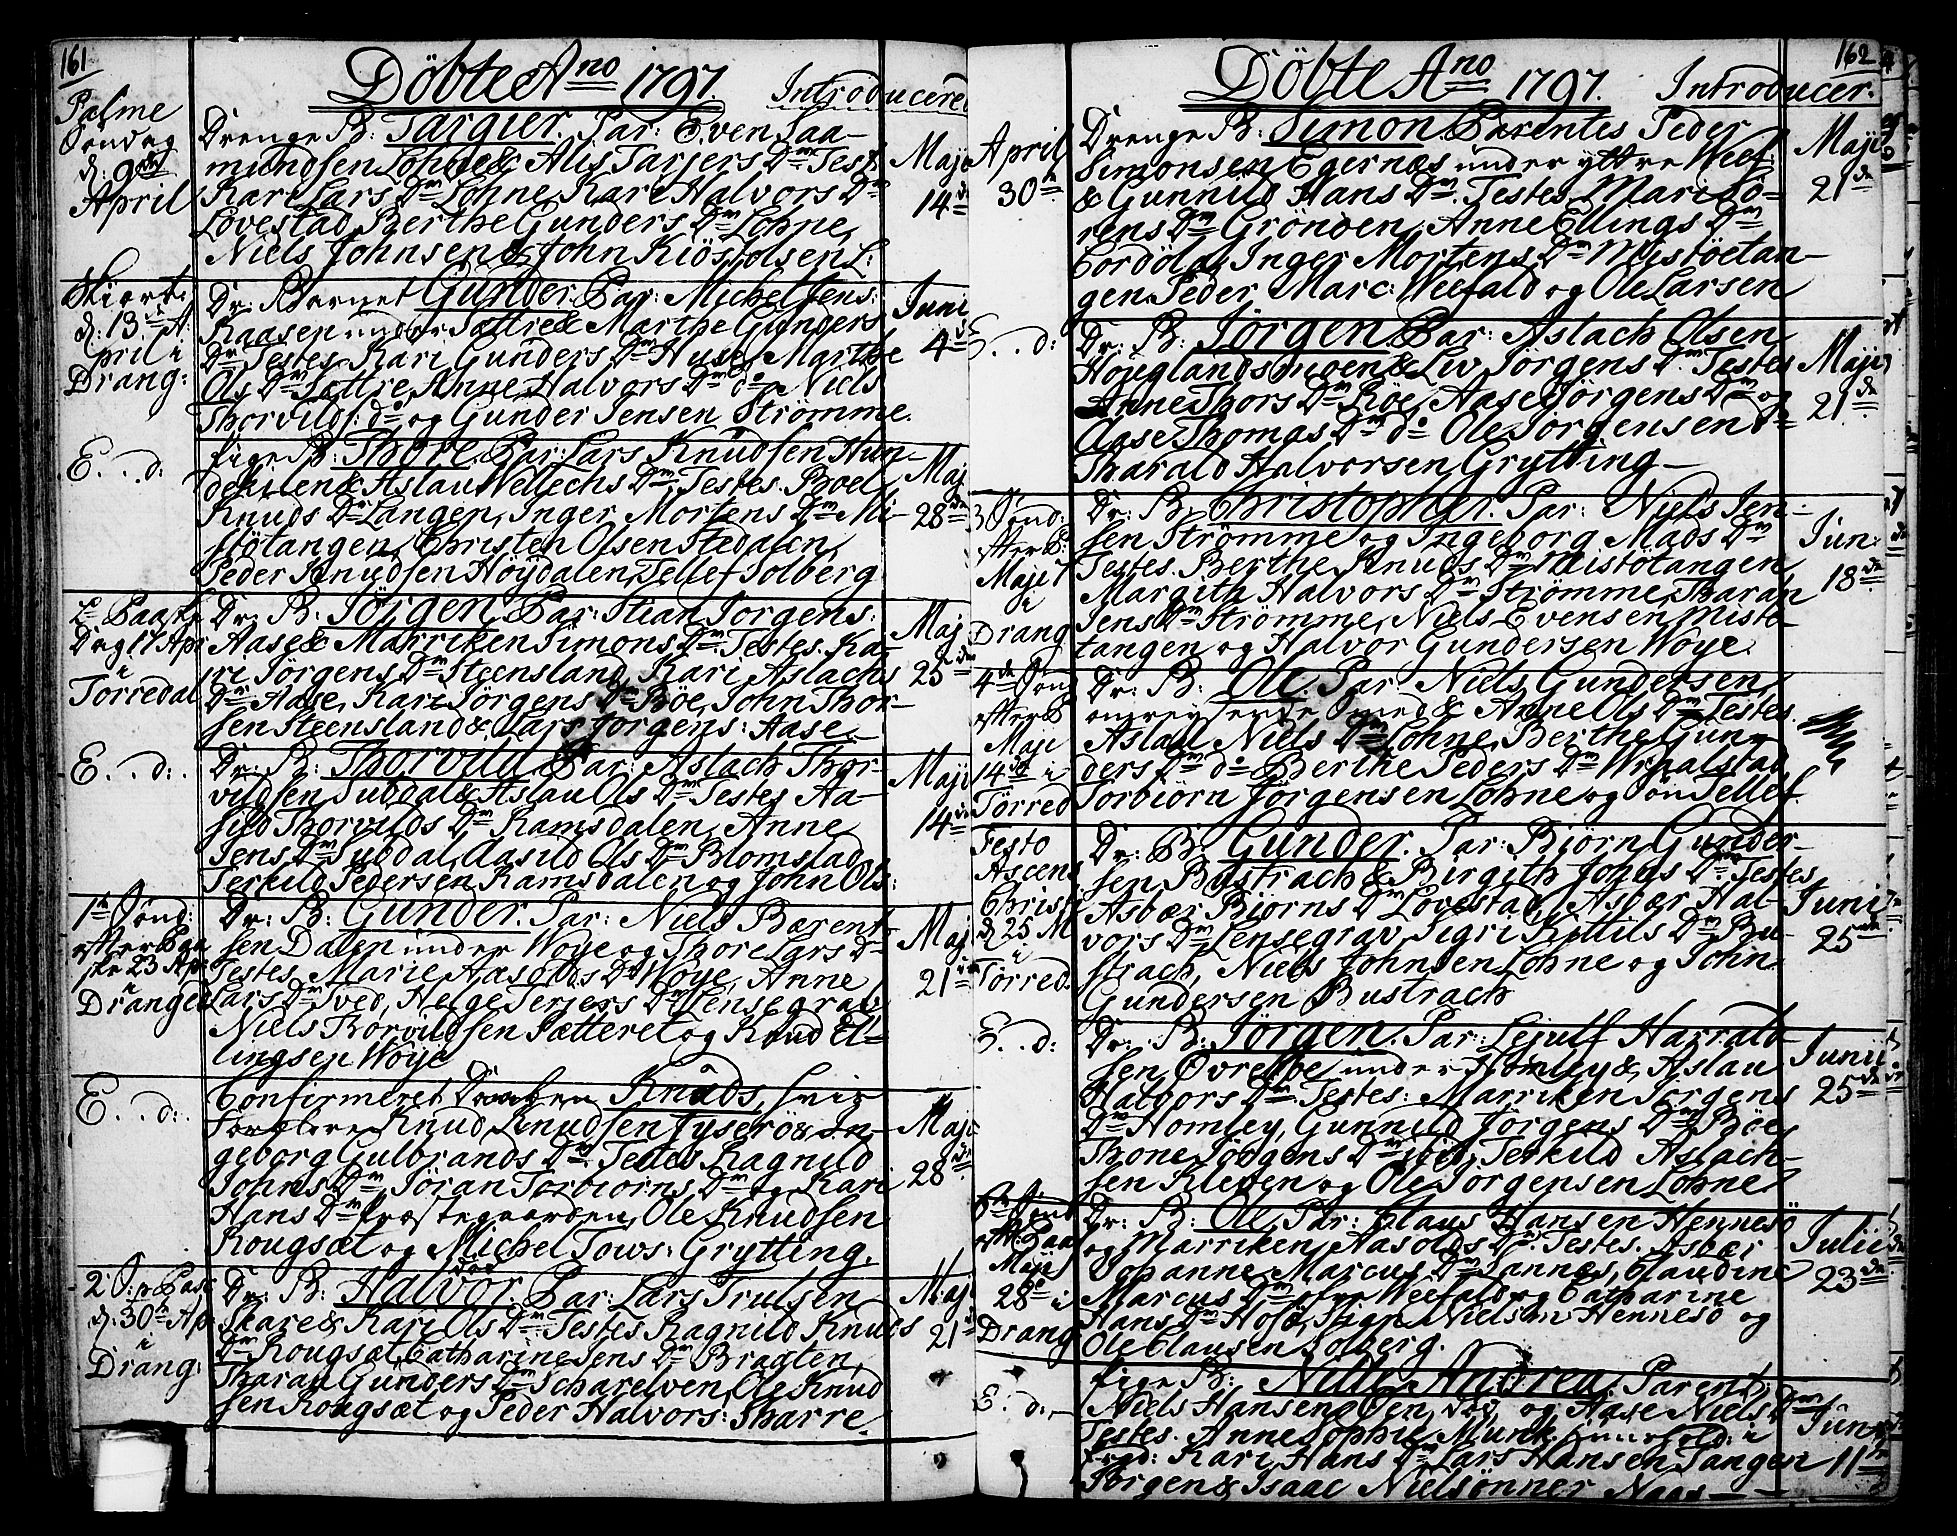 161
Döbte Ano 1797.
Introducered
Palme
Søndag
d: 9de
April
Drenge B: Targier. Par: Even Saa-
mundsen Lohne & Alis Tarjers Dr. Test:
Kari Lars Dr Lohne, Kari Halvors Dr
Lovestad, Berthe Gunders Dr Lohne,
Niels Johnsen & John Kiöstolsen L:
Maji
14de
Skiert:
d: 13de A:
pril i
Drang:
Dr: Barnet Gunder. Par: Michel Jens:
Raasen under Sættre & Marthe Gunders
Dr. Testes Kari Gunders Dr Huse, Marthe
Ols Dr Sættre, Anne Halvors Dr do, Niels
Thorvilds: do og Gunder Jensen Strömme.
Juni
4de
E...d:
Pige B: Thore. Par: Lars Knudsen Hun-
dekilen & Aslau Vellechs Dr. Testes. Boel
Knuds Dr Langen, Inger Mortens Dr Mi-
stötangen, Christen Olsen Stedalen,
Peder Knudsen Höydalen, Tellef Solberg
Maj
28de
2 Paaske
Dag 17 Apr
i
Torredal
Dr: B: Jörgen. Par: Stian Jorgens:
Aase & Marriken Simons Dr. Testes. Ka-
ri Jörgens Dr Steensland, Kari Aslachs
Dr Aase, Kari Jörgens Dr Böe, John Thor-
sen Steensland & Lars Jorgens: Aase.
Maj
25de
E...d:
Dr: B: Thorvild. Par: Aslach Thor-
vildsen Subdal & Aslau Ols Dr Testes Aa-
sild Thorvilds Dr Ramsdalen, Anne
Jens Dr Subdal, Aasild Ols Dr Blomstad
Terkild Pedersen Ramsdalen og John Ols:
Maji
14de
1te Sønd:
efter Paa
ske 23 Apr
i
Dranged
Dr: B: Gunder. Par: Niels Barent
sen Dalen under Woye og Thore Lars Dr
Testes Marie Aasolds Dr Woye, Anne
Lars Dr Tved, Helge Terjers Dr Lensegrav
Niels Thorvildsen Sætteret og Knud El-
lingsen Woye
Maj
21de
E...d:
Confirmeret Daaben Knuds, hvis
Forældre Knud Knudsen Fyserö & In-
geborg Gulbrands Dr. Testes Ragnild
Johns Dr, Jöran Torbiorns Dr og Kari
Hans Dr Præstegaarden, Ole Knudsen
Rougsæt og Michel Tows: Grytting.
Maji
28de
2 S: p Pasc
d: 30te Ap
i
Drang:
Dr: B: Halvor. Par: Lars Trulsen
Skare & Kari Ols Dr. Testes Ragnild Knuds
Dr Rougsæt, Catharine Jens Dr Bragten,
Tharan Gunders Dr Scharelven, Ole Knud
sen Rougsæt og Peder Halvors: Tharre.
Maji
21de
162
Döbte Ano 1797.
Introducer.
April
30te
Drenge B: Simon Parentes Peder
Simonsen Egernæs under yttre Weef:
& Gunnild Hans Dr. Testes. Mari Sö-
rens Dr Grönden, Anne Ellings Dr
Tordöla, Inger Mortens Dr Mistöetan-
gen Peder Marc: Weefald og Ole Larsen
Maji
21de
E...d:
Dr: B: Jörgen. Par: Aslach Olsen
Höuglandsmoen & Liv Jörgens Dr Testes
Anne Thors Dr Röe, Aase Jörgens Dr og
Aase Thomas Dr do Ole Jorgensen do
Tharald Halvorsen Grytting
Maji
21de
3 Sønd:
efter P:
Maji 7
i
Drang
Dr: B: Christopher. Par: Niels Jen-
sen Strömme og Ingeborg Mads Dr
Testes. Berthe Knuds Dr Mistötangen,
Margith Halvors Dr Strömme, Tharan
Jens Dr Strömme, Niels Evensen Misto-
tangen og Halvor Gundersen Woye.
Jun:
18de
4de Sønd
efter P
Maji
14de i
Törred
Dr: B: Ole. Par: Niels Gundersen
omreysende Smed & Anne Ols Dr Testes.
Aslau Niels Dr Lohne, Berthe Gun-
ders Dr do Berthe Peders Dr Wraalstad
Torbiörn Jörgensen Lohne og Sön Tellef.
Festo
Ascens
Christi
d 25 M
i
Törred.
Dr: B: Gunder. Par: Biörn Gunder-
sen Bustrach & Birgith Johns Dr Testes
Asbær Biorns Dr Lovestad, Asbær Hal-
vors Dr Lensegrav, Sigri Kittils Dr Bu-
strach, Niels Johnsen Lohne og John
Gundersen Bustrach
Juni
25de
E...d:
Dr: B: Jörgen. Par: Lejulf Harrald-
sen Øvreböe under Homley & Aslau
Halvors Dr. Testes: Marriken Jorgens
Dr Homley, Gunnild Jörgens Dr Böe,
Thone Jörgens Dr ibid, Terkild Aslach-
sen Kleven og Ole Jorgensen Lohne
Junii
25de
6te Sønd
eft: Paas
Maji
28de i
Drang
Dr: B: Ole. Par: Claus Hansen Hennesö
og Marriken Aasolds Dr. Testes. Asbær
Johanne Marcus Dr Sannes, Claudine
Marcus Dr Weefald og Catharine
Hans Dr Hofd, Niels Nielsen Hennesö og
Ole Clausen Solberg.
Julii
23de
E...d:
Pige B: Nille Andrea. Parent:
Niels Hansen Öen, död, og Aase Niels Dr
Testes. Anne Sophie Munk i
Kari Hans Dr Lars Hansen Tangen
Jörgen & Isaac Nielsönner Naas
Jun
11te